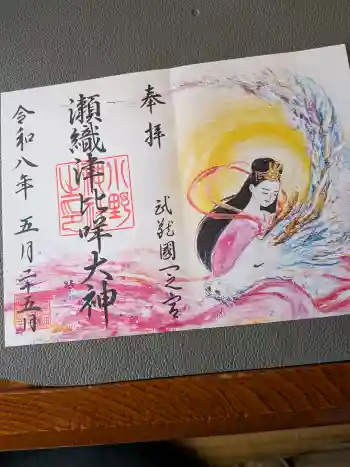 奉拝
武蔵國一之宮
瀬織津比咩大神
小野
神社
之印
令和八年 五月二十五日